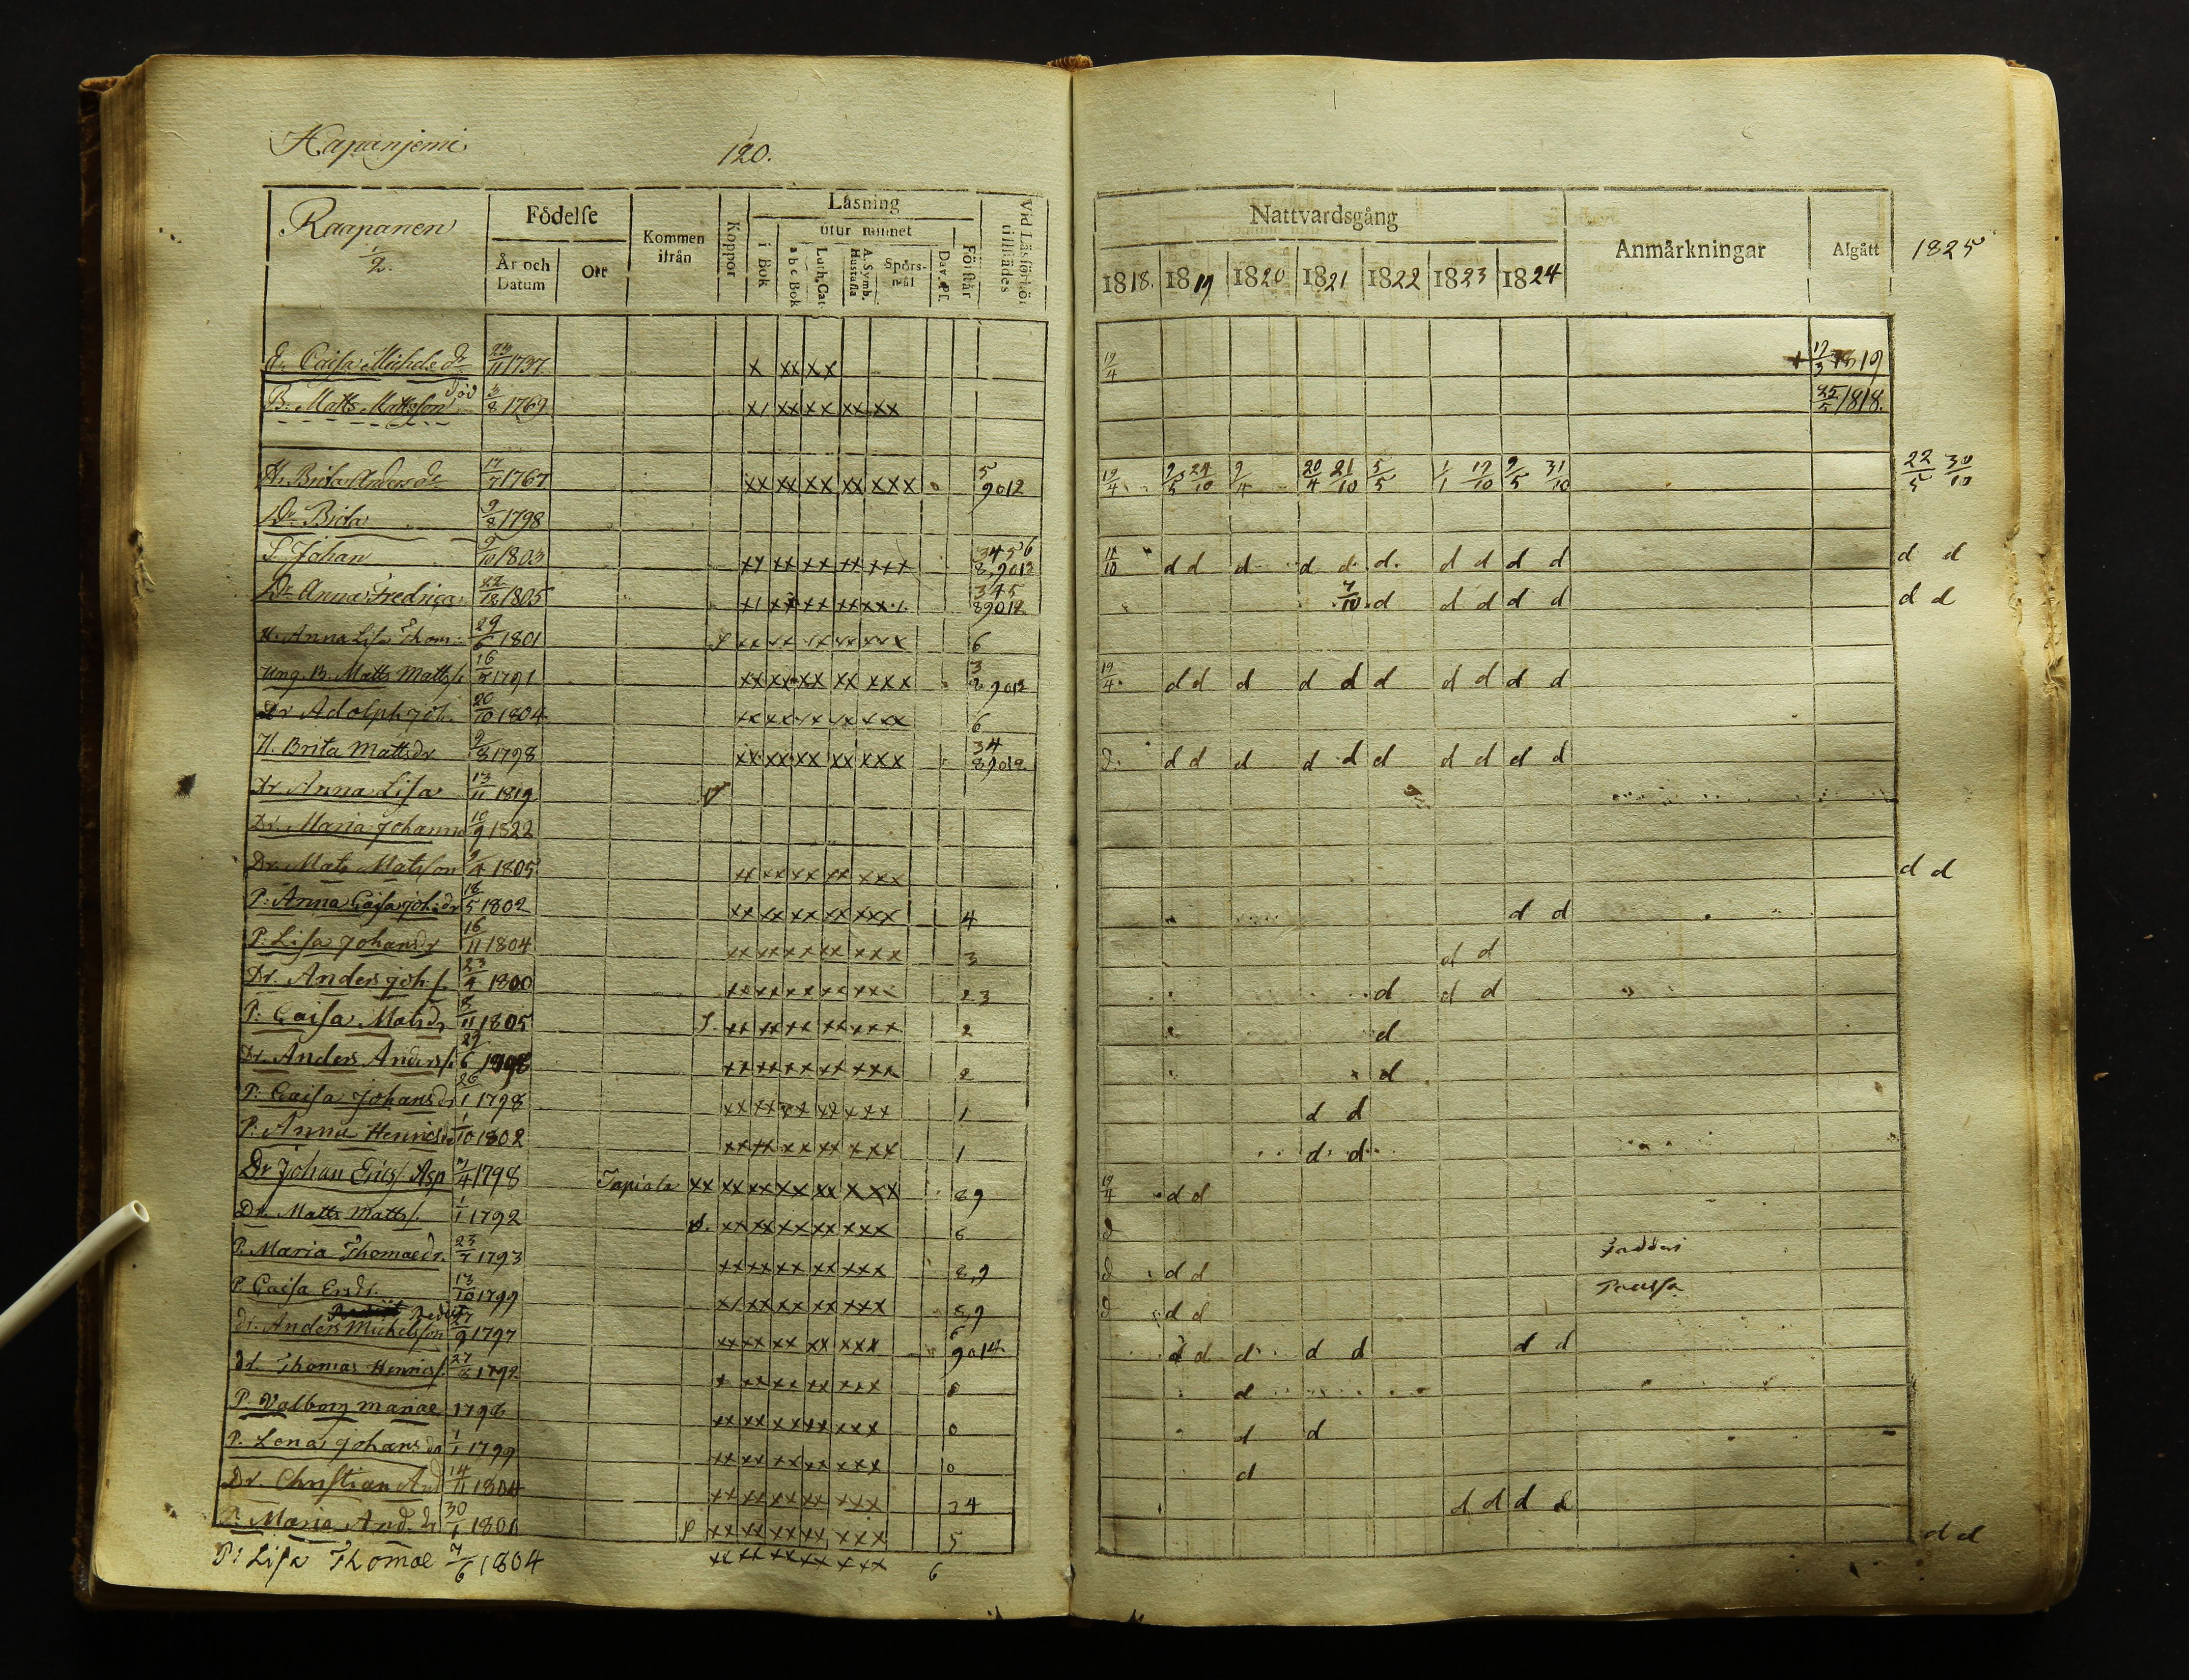 Hapanjemi
120.
Raapanen
1/2.
Födelse
År och Datum
Ort
Kommen ifrån
Koppor
Läsning
i Bok
utur minnet
a b c Bok
Luth. Cat
A. Symb. Hustafla
Spörs-mål
Dav. Ps.
Förstår
Vid Läsförhör tillstädes
Nattvardsgång
1818. 1819 1820 1821 1822 1823 1824
Anmärkningar
Afgått
1825
E. Caisa Michelsdr 23/11 1737 x xx xx 19/4 + 17/3 1819
B. Matts Mattsson död 3/8 1769 x/ xx xx xx xx 25/5 1818.
H. Brita Andersdr 17/7 1767 xx xx xx xx xxx 5 9012 19/4 9/5 24/10 9/4 20/4 21/10 5/5 1/1 12/10 9/5 31/10 22/5 30/10
Dr Brita 9/8 1798
S. Johan 9/10 1803 xx xx xx xx xxx 3456 89012 18/10 d d d d d d d d d d d d
Dr Anna Fredrica 22/12 1805 x/ xx xx xx xx 345 89012 7/10 d d d d d d d
H. Anna Lisa Thom: 29/6 1801 S xx xx xx xx xxx 6
Ung. B. Matts Matts. 16/7 1791 xx xx xx xx xxx 3 89012 19/4 d d d d d d d d d d
Dr Adolph Joh. 20/10 1804 xx xx xx xx xxx 6
H. Brita Mattsdr 9/8 1798 xx xx xx xx xxx 34 89012 d d d d d d d d d d d
Dr. Anna Lisa 13/11 1819 V
Dr. Maria Johanna 10/9 1822
Dr. Mats Matsson 9/4 1805 xx xx xx xx xxx d d
P. Anna Caisa Joh:dr 18/5 1802 xx xx xx xx xxx 4 d d
P. Lisa Johansdr 16/11 1804 xx xx xx xx xxx 3 d d
Dr. Anders Joh. s. 23/4 1800 xx xx xx xx xxx 23 d d d
P: Caisa Matsdr 8/11 1805 S. xx xx xx xx xxx 2 d
Dr. Anders Anders. 29/6 1798 xx xx xx xx xxx 2 d
P: Caisa Johansdr 26/1 1798 xx xx xx xx xxx 1 d d
P. Anna Henricsdr 1/10 1802 xx xx xx xx xxx 1 d d
Dr Johan Erics. Asp 2/4 1798 Tapiala xx xx xx xx xx xxx 89 19/4 d d
Dr. Matts Matts. 1/1 1792 S. xx xx xx xx xxx 6 d
P. Maria Thomaedr. 23/7 1793 xx xx xx xx xxx 8,9 d d d
P. Caisa Ersdr. 13/10 1799 x/ xx xx xx xxx 8,9 d d d
dr. Anders Michelsson 27/9 1797 xx xx xx xx xxx 9014 d d d d d d d
dr. Thomas Henrics. 27/8 1792 x xx xx xx xxx 0 d
P. Valborg Manae 1798 xx xx xx xx xxx 0 d d
P. Lena Johansdr 1/1 1799 xx xx xx xx xxx 0 d
Dr. Christian And 14/11 1804 xx xx xx xx xxx 34 d d d d
P. Maria And. dr 30/1 1801 S xx xx xx xx xxx 5 d d
P: Lisa Thomae 7/6 1804 xx xx xx xx xxx 6